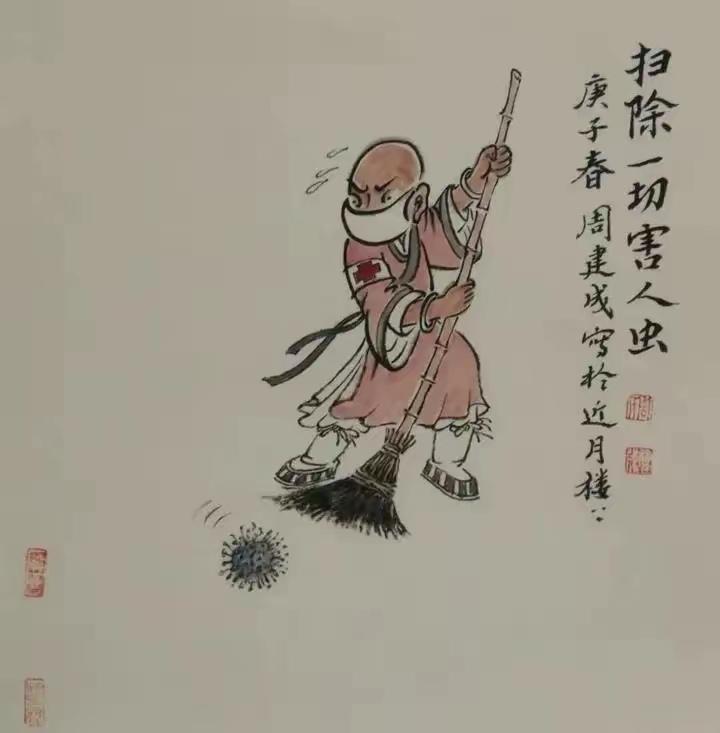 扫除一切害人虫
庚子春 周建成写於近月楼